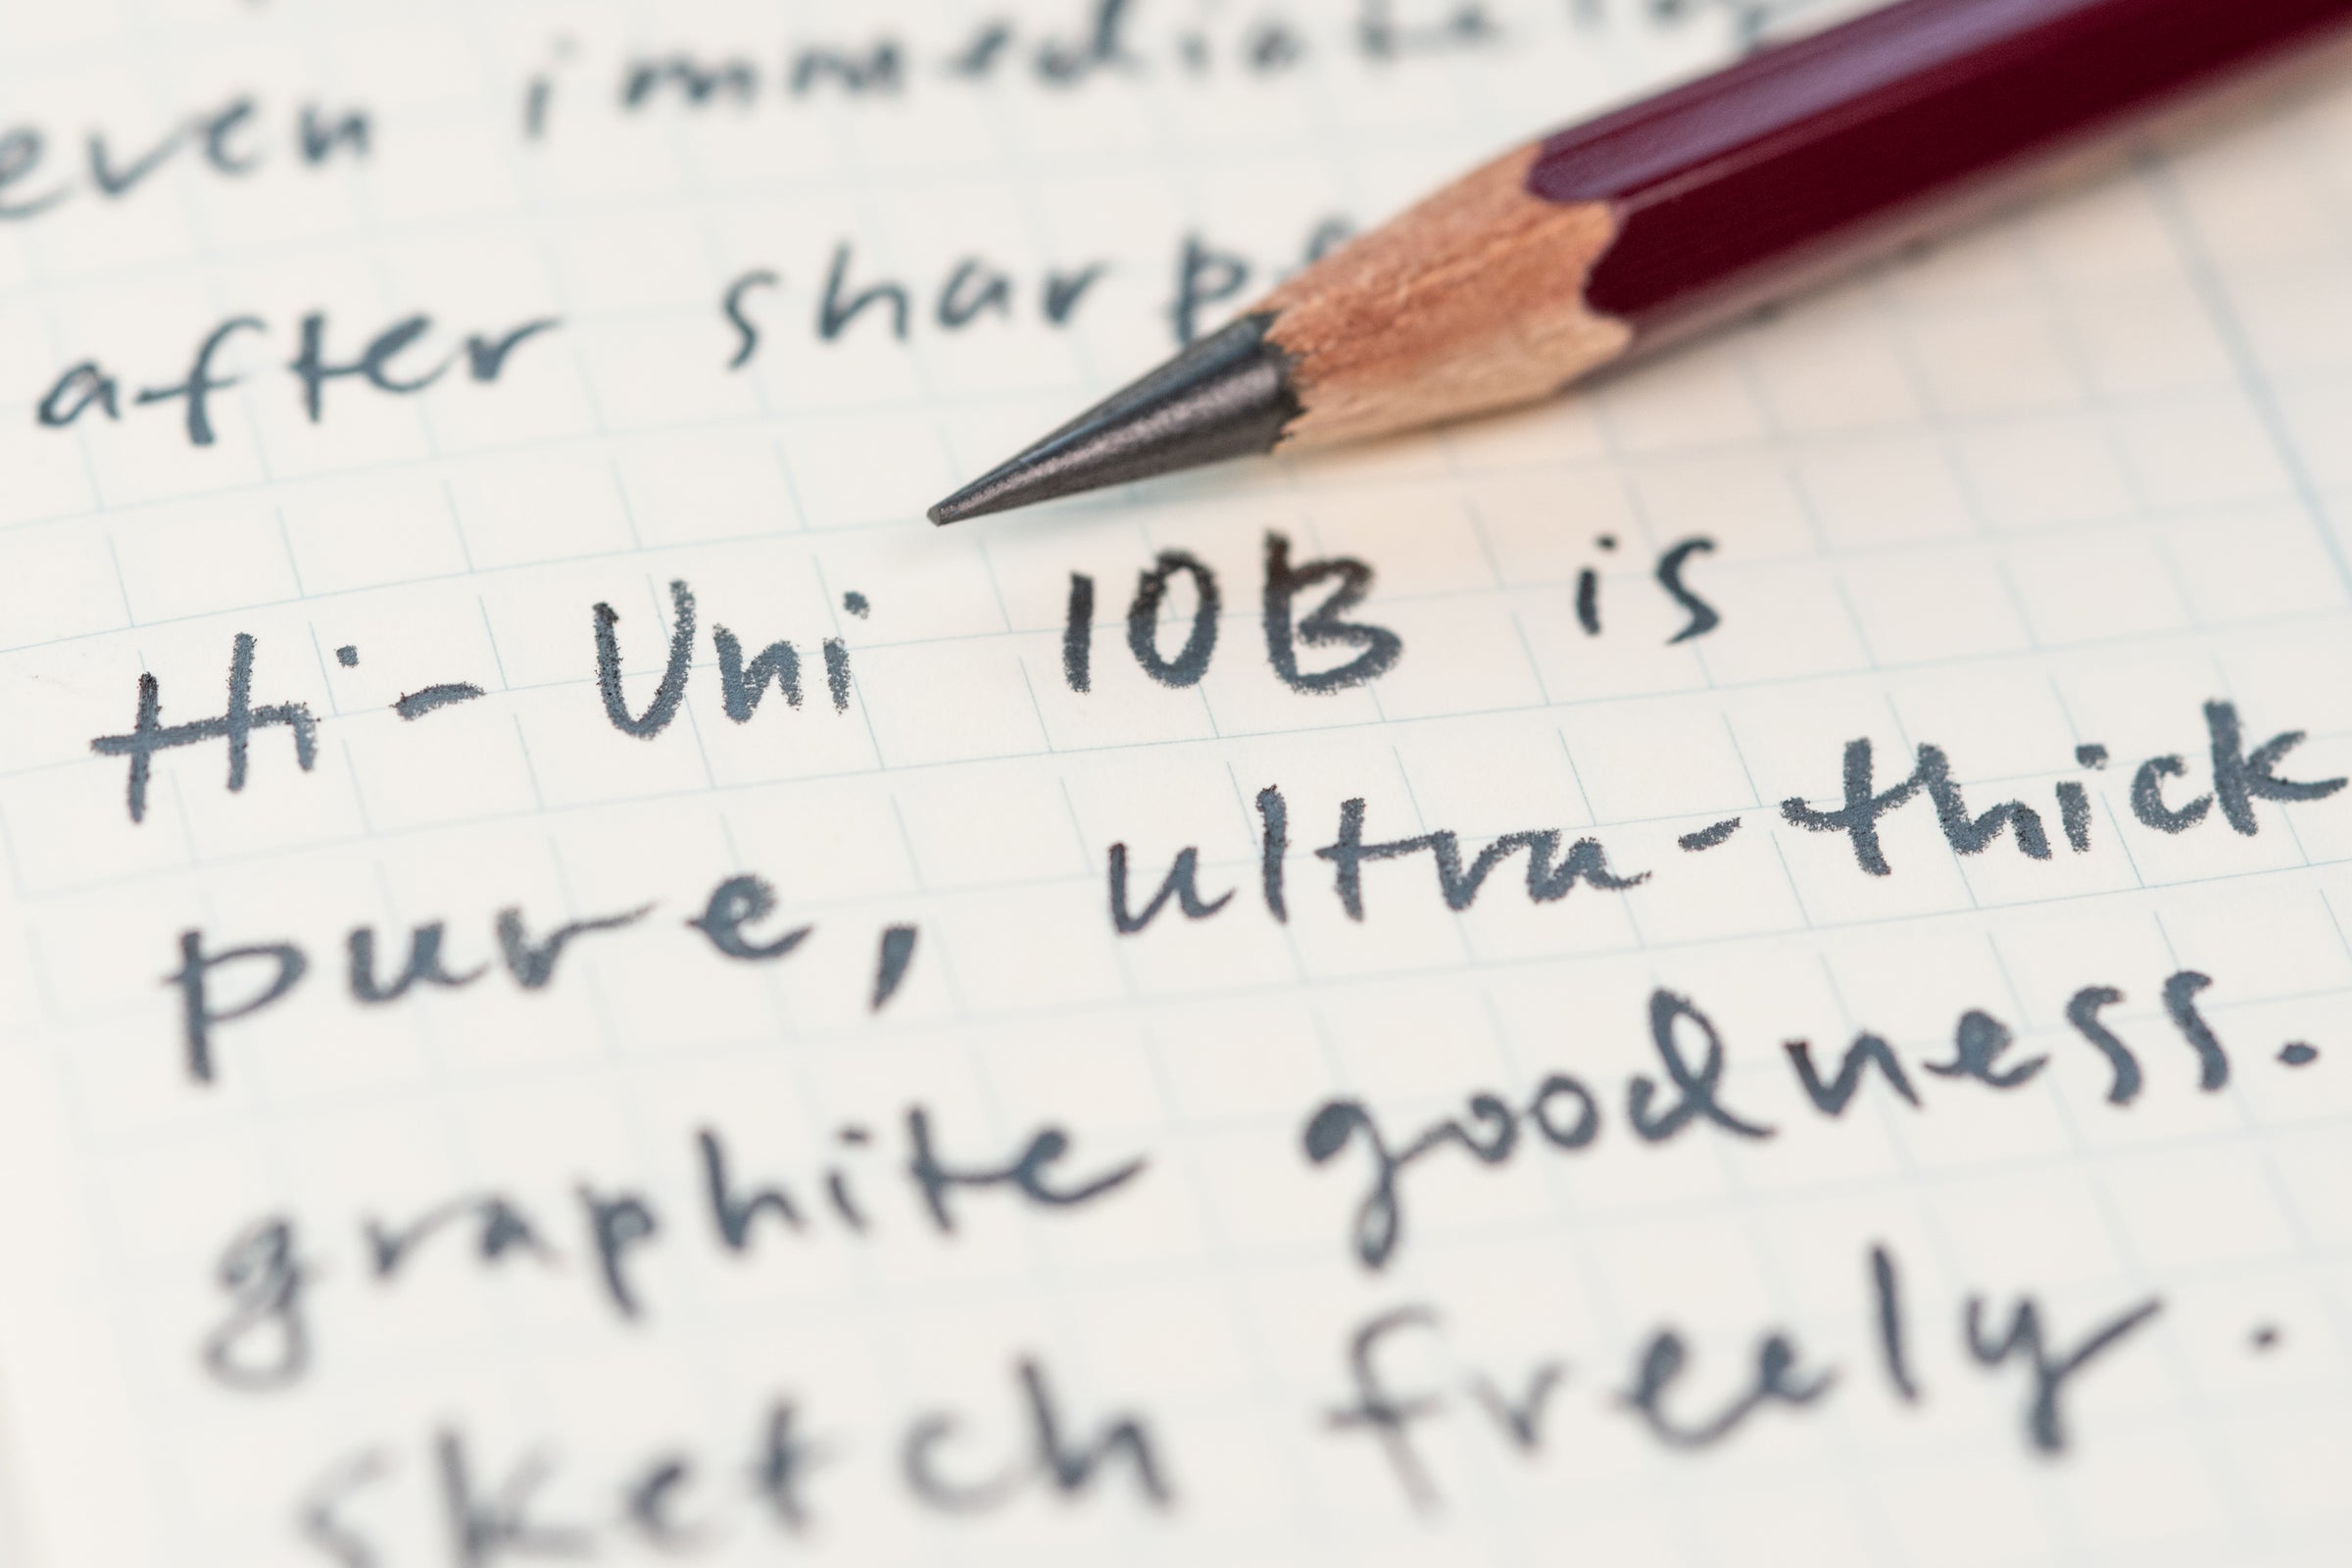 even immediately
after
Hi-Uni 10B is
pure, ultra-thick
graphite goodness.
sketch freely.